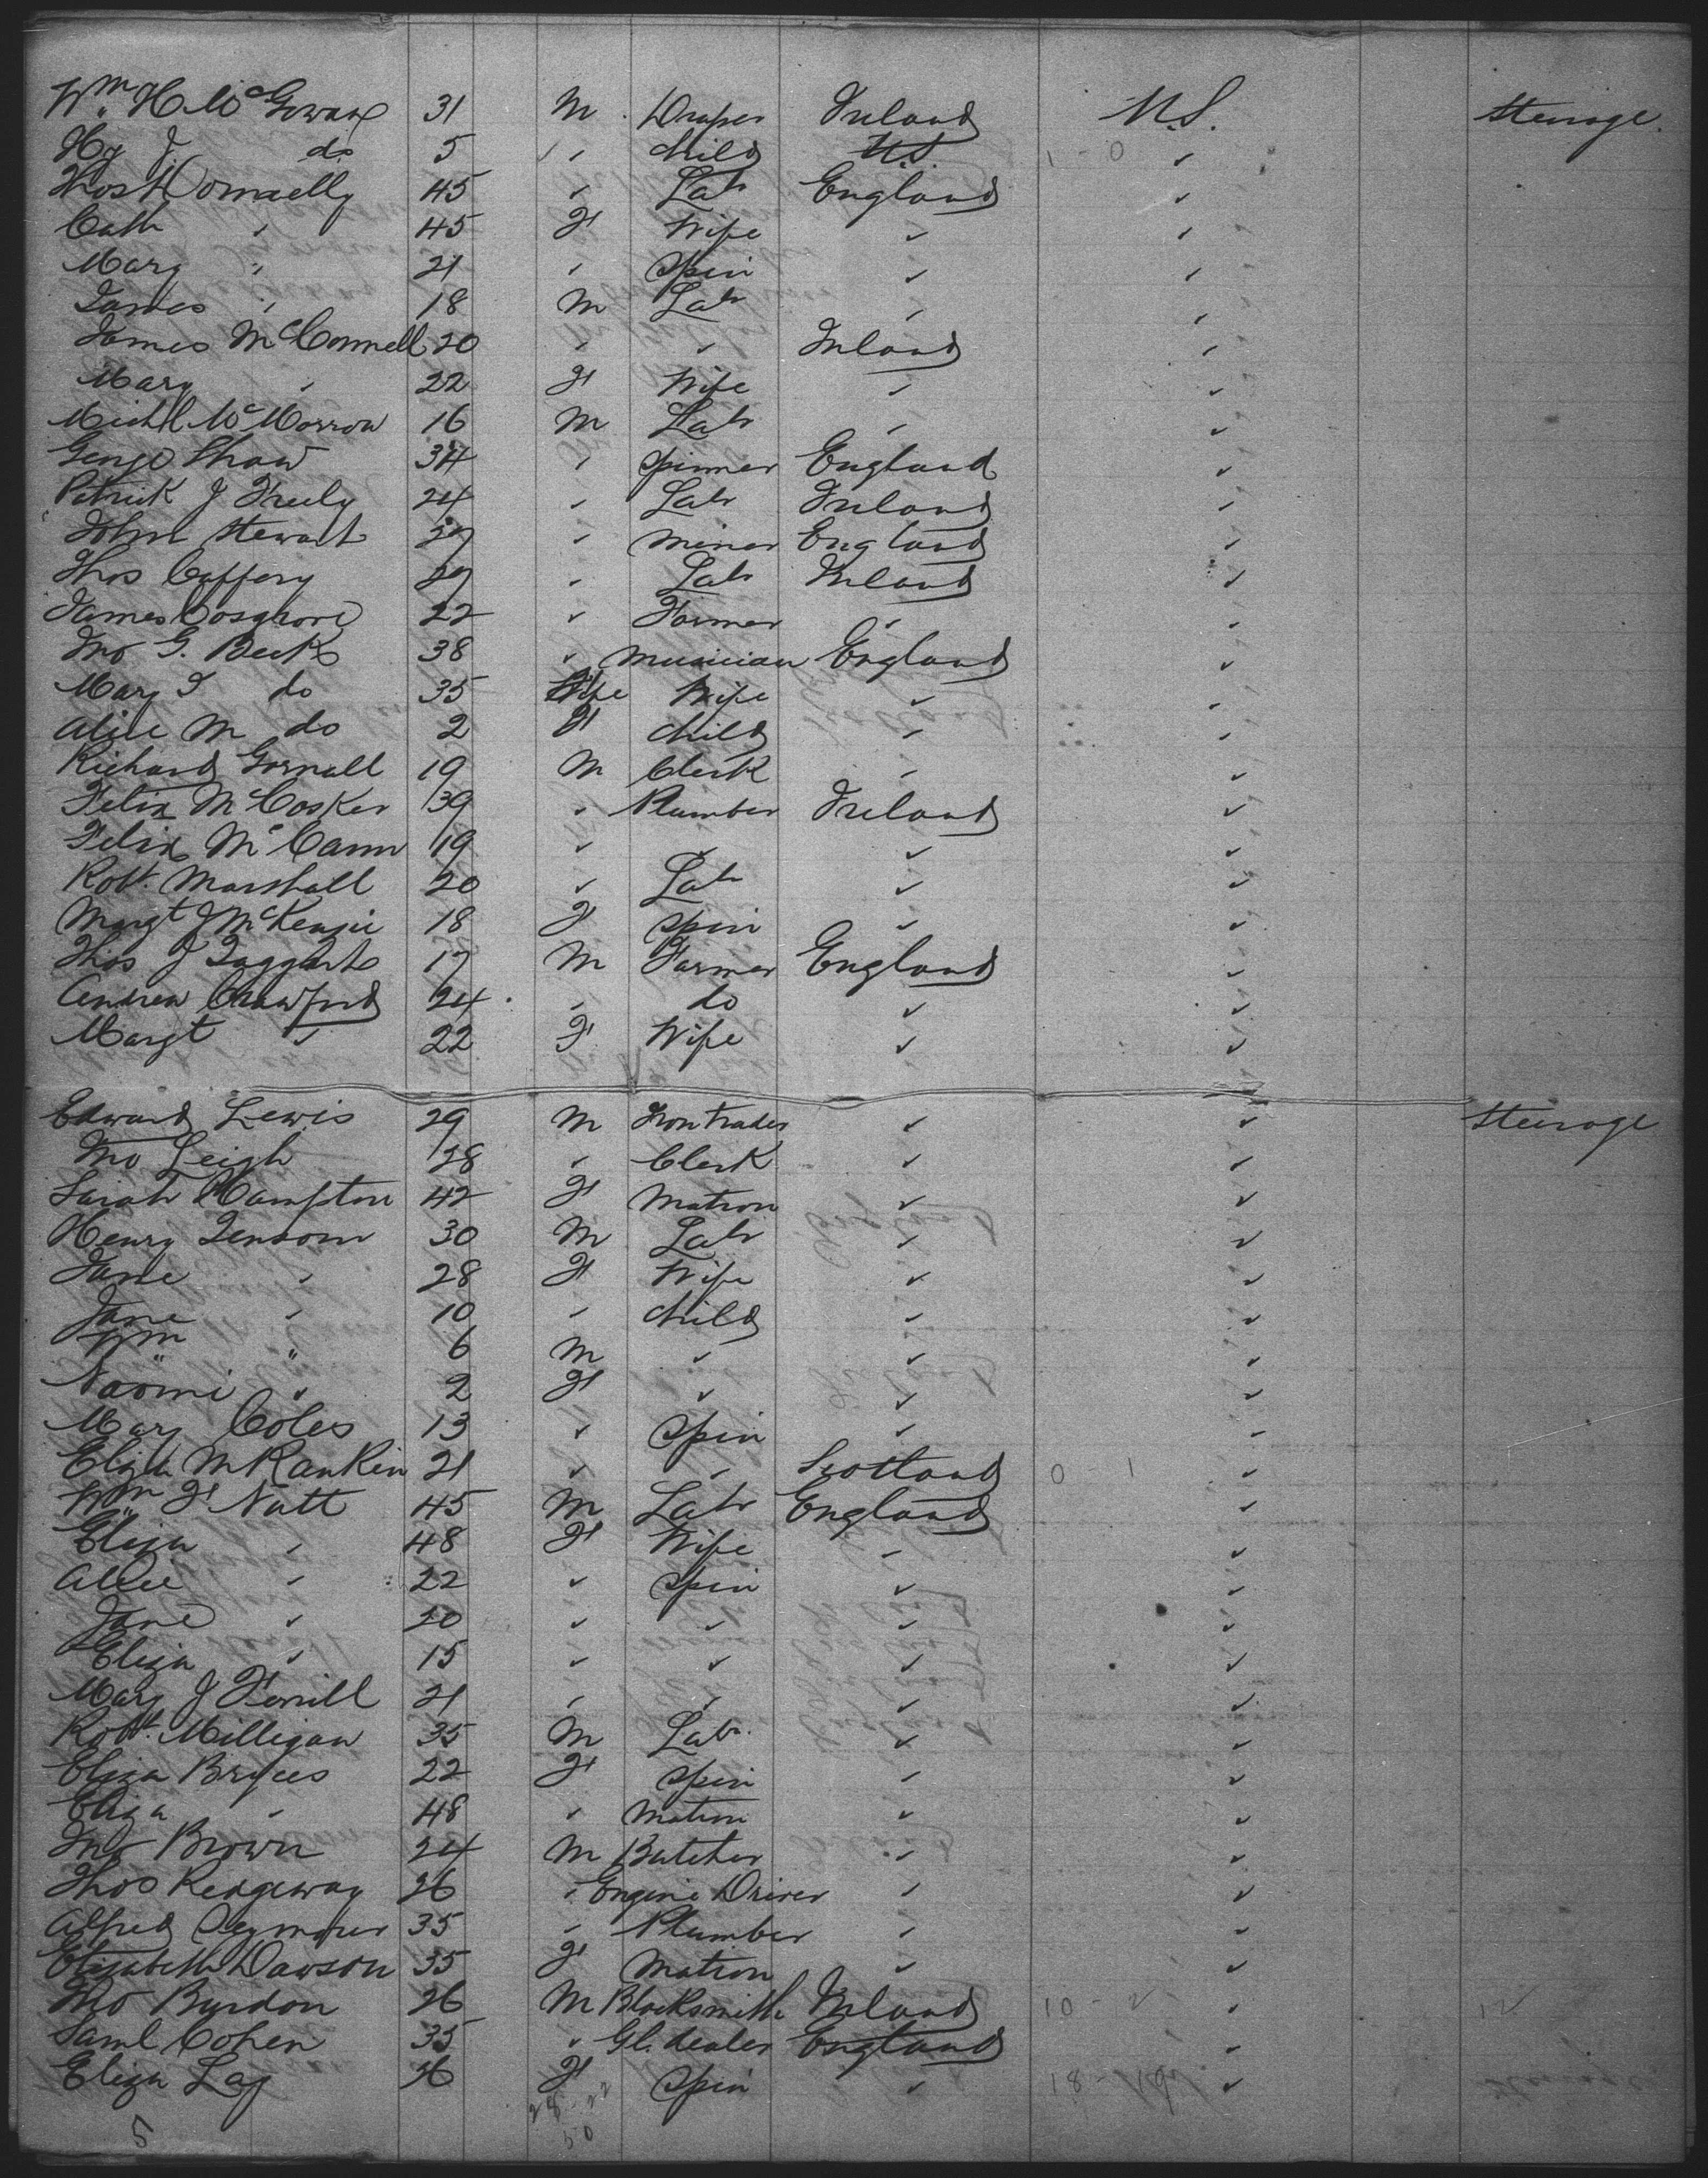 Wm H McGowan 31 M Draper Ireland U.S. Steerage
Hy J. do 5 ✓ " Child U.S. 1 - 0 "
Thos Donnelly 45 " Lab England "
Cath " 45 F Wife " "
Mary " 21 " Spin " "
James " 18 M Lab " "
James McConnell 20 " " Ireland "
Mary " 22 F Wife " "
Michl McMorrow 16 M Lab " "
George Shaw 34 " Spinner England "
Patrick J Freely 24 " Lab Ireland "
John Stewart 27 " Miner England "
Thos Caffery 27 " Lab Ireland "
James Cosgrove 22 " Farmer " "
Jno G. Beck 38 " Musician England "
Mary I do 35 Wife Wife " "
Alice M do 2 F Child " "
Richard Gornall 19 M Clerk " "
Felix McCosker 39 " Plumber Ireland "
Felix McCann 19 " " " "
Robt. Marshall 20 " Lab " "
Margt J McKenzie 18 F Spin " "
Thos J Taggart 17 M Farmer England "
Andrew Crawford 24 " do " "
Margt " 22 F Wife " "
Edward Lewis 29 M Iron Trader " " Steerage
Jno Leigh 28 " Clerk " "
Sarah Hampton 42 F Matron " "
Henry 30 M Lab " "
Jane " 28 F Wife " "
Jane " 10 " Child " "
Wm " 6 M " " "
Naomi " 2 F " " "
Mary Coles 13 " Spin " "
Elizth M Rankin 21 " " Scotland 0 1 "
Wm F Natt 45 M Lab England "
Eliza " 48 F Wife " "
Alice " 22 " Spin " "
Jane " 20 " " " "
Eliza " 15 " " " "
Mary J Ferrill 21 " " " "
Robt. Milligan 35 M Lab. " "
Eliza Bryces 22 F Spin " "
Eliza " 48 " Matron " "
Jno Brown 24 M Butcher " "
Thos Redgeway 26 " Engine Driver " "
Alfred Seymour 35 " Plumber " "
Elizabeth Dawson 35 F Matron " "
Jno Burdon 26 M Blacksmith Ireland 10 - 2 " 12
Saml Cohen 35 " Gl. dealer England "
Eliza Lay 26 F Spin " 18 - "
28 - 22
5 50